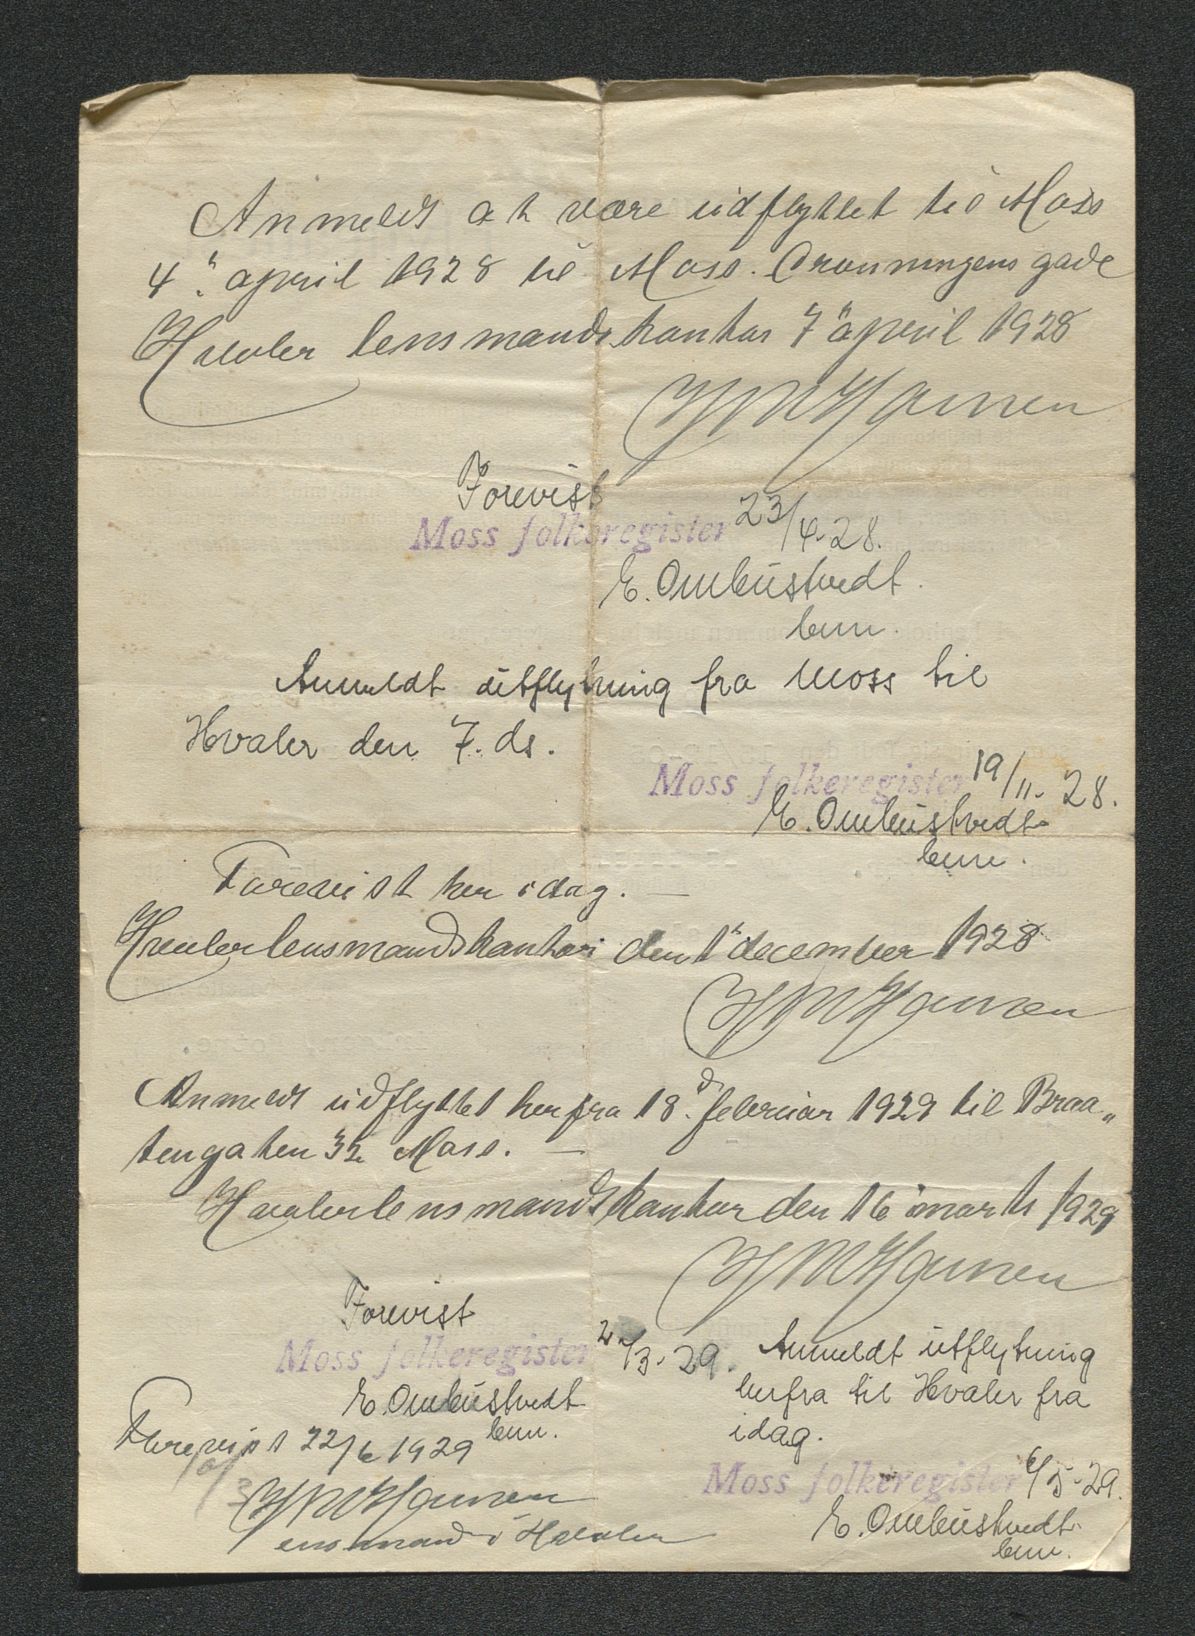 Anmeldt at være udflyttet til Moss
4" april 1928 til Moss. Cronningens gade
Hvaler lensmandskontor 7" april 1928
H M Hansen
Forevist
Moss folkeregister 23/4-28.
E. Ombustvedt
bem.
Anmeldt utflytning fra Moss til
Hvaler den 7. ds.
Moss folkeregister 19/11-28.
E. Ombustvedt
bem.
Forevist her idag. —
Hvaler lensmandskontor den 1" december 1928
H M Hansen
Anmeldt udflyttet herfra 18. februar 1929 til Braa„
tengaten 32 Moss. —
Hvaler lensmandskontor den 16 marts 1929
H M Hansen
Forevist
Moss folkeregister /3-29.
E. Ombustvedt
bem.
Forevist 22/6 1929
H M Hansen
lensmand i Hvaler
Anmeldt utflytning
herfra til Hvaler fra
idag.
Moss folkeregister 6/5-29.
E. Ombustvedt
bem.